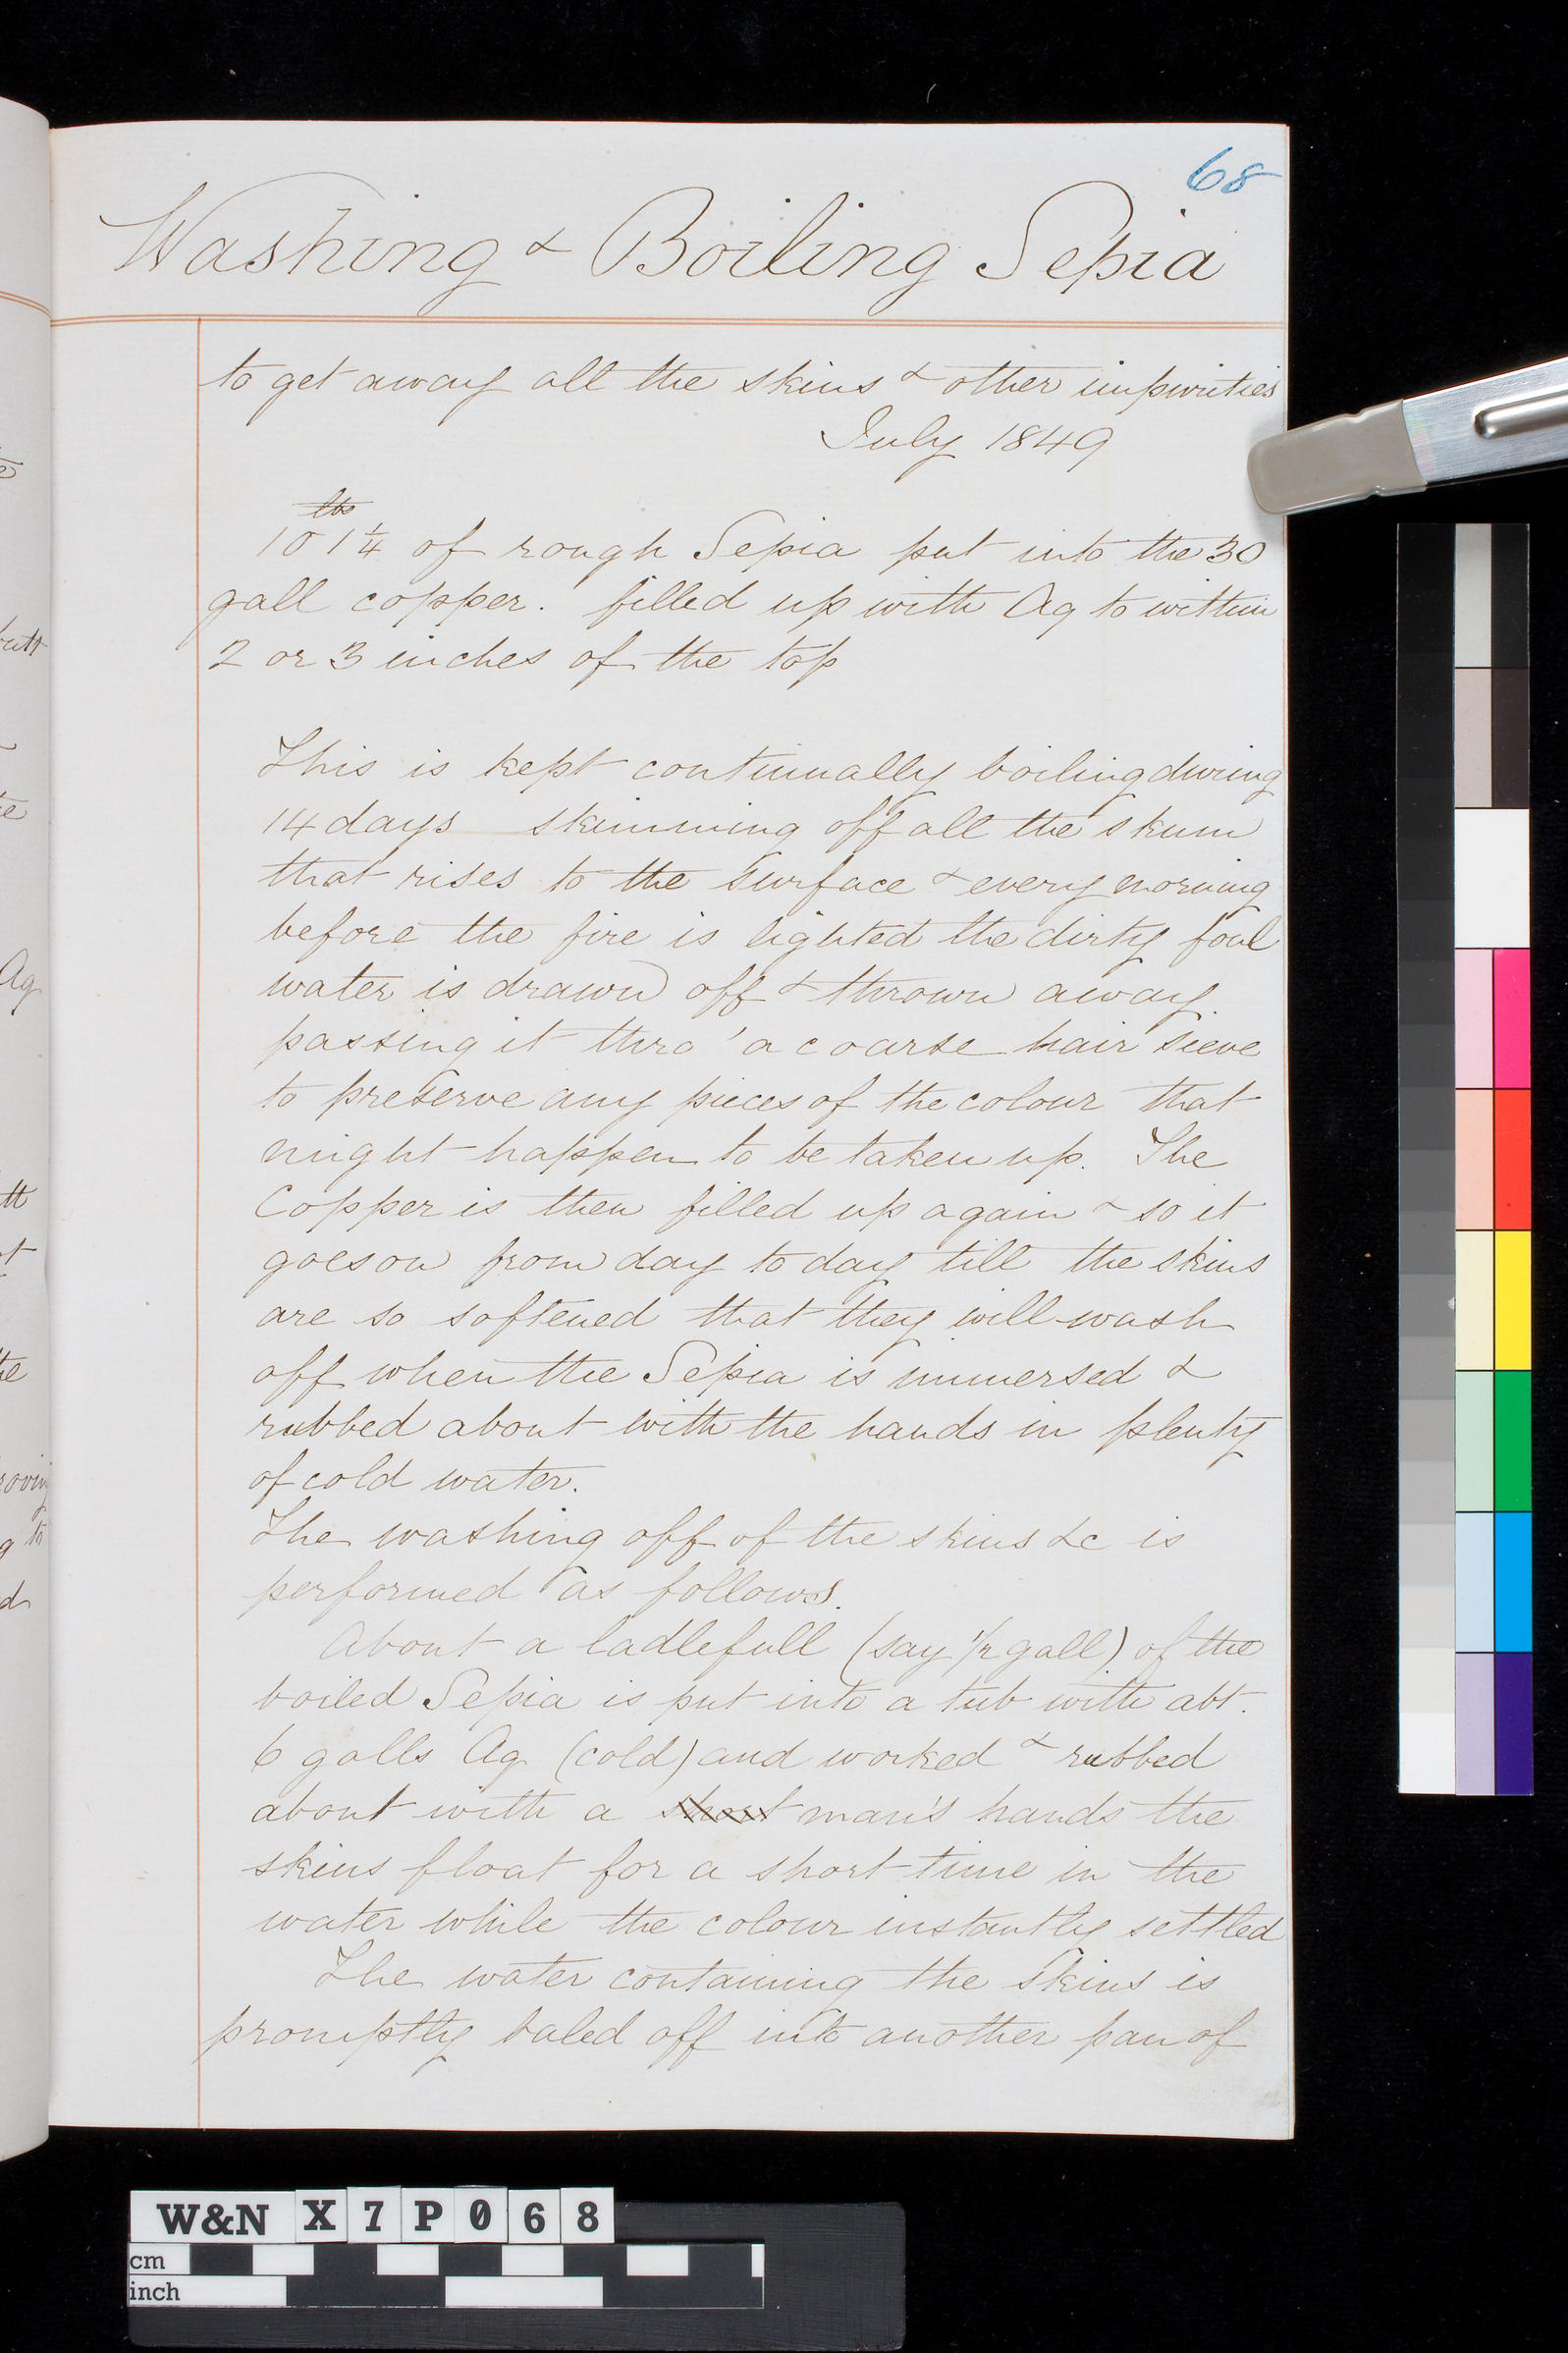 68
Washing & Boiling Sepia
to get away all the skins & other impurities
July 1849
lbs
101¼ of rough Sepia put into the 30
gall copper. filled up with Aq to within
2 or 3 inches of the top
This is kept continually boiling during
14 days skimming off all the skum
that rises to the surface & every morning
before the fire is lighted the dirty foul
water is drawn off & thrown away
passing it thro' a coarse hair sieve
to preserve any pieces of the colour that
might happen to be taken up. The
Copper is then filled up again & so it
goes on from day to day till the skins
are so softened that they will wash
off when the Sepia is immersed &
rubbed about with the hands in plenty
of cold water.
The washing off of the skins &c is
performed as follows.
About a ladlefull (say 1/2 gall) of the
boiled Sepia is put into a tub with abt.
6 galls Aq (cold) and worked & rubbed
about with a short man's hands the
skins float for a short time in the
water while the colour instantly settled
The water containing the skins is
promptly baled off into another pan of
W&N X7P068
cm
inch